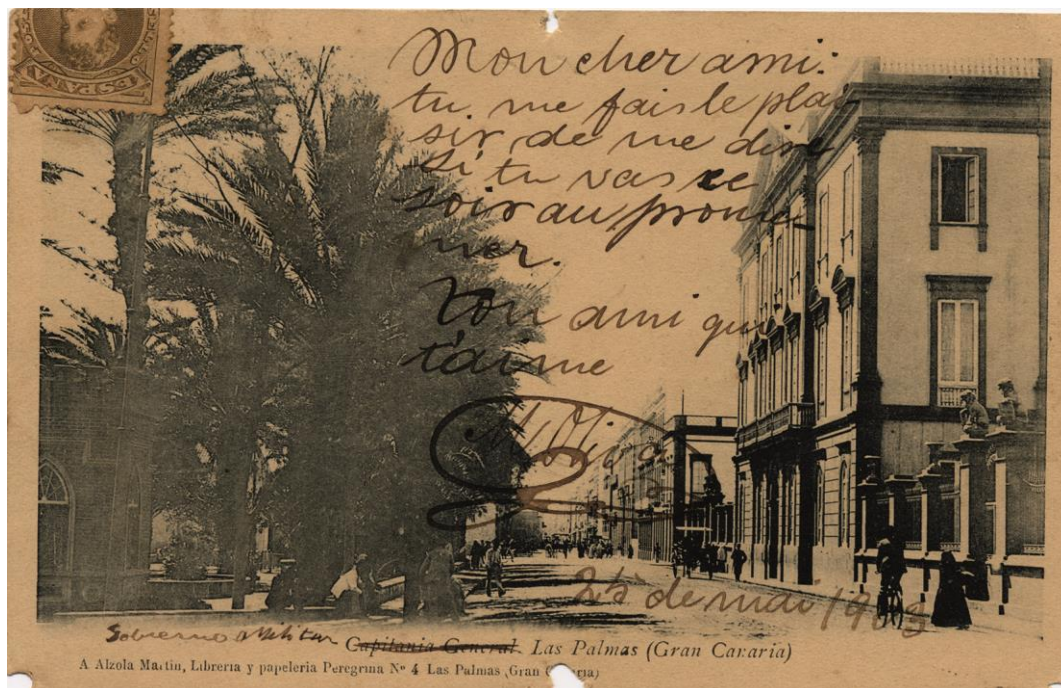 ESPAÑA
Mon cher ami.
tu me fais le plai
sir de me dire
si tu vas ce
soir au prome
ner.
Ton ami qui
t'aime
M Oliva
25 de mai 1903
Gobierno Militar Capitania General. Las Palmas (Gran Canaria)
A Alzola Martin, Libreria y papeleria Peregrina Nº 4 Las Palmas (Gran Canaria)